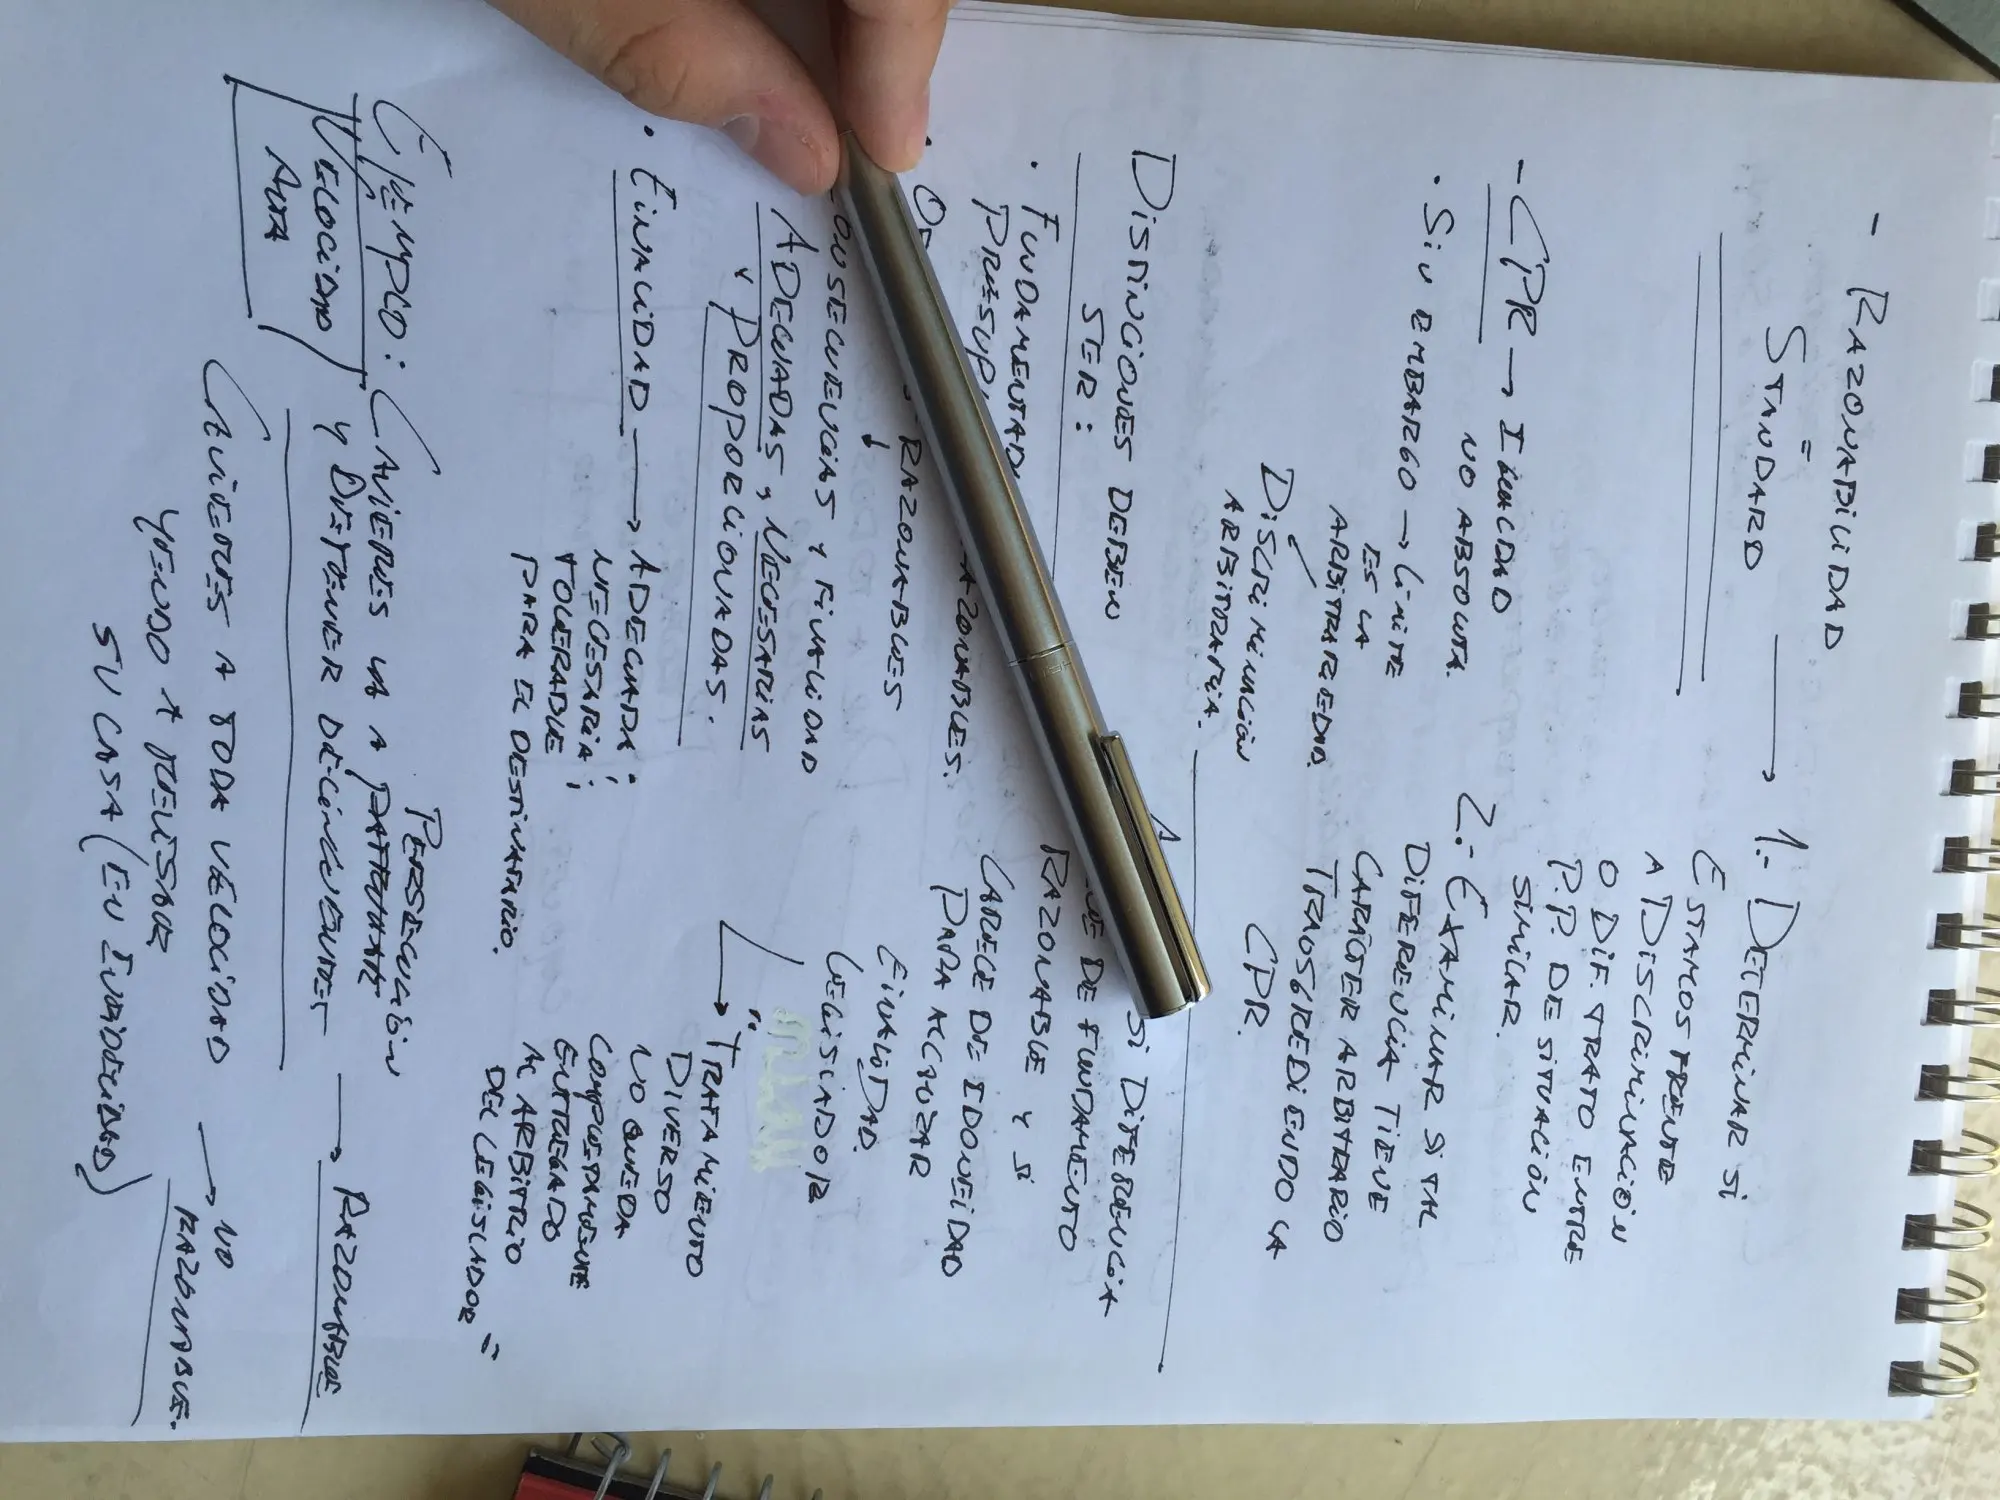 - RAZONABILIDAD
=
STANDARD
- CPR → IGUALDAD
NO ABSOLUTA.
· SIN EMBARGO → LIMITE
ES LA
ARBITRARIEDAD.
DISCRIMINACIÓN
ARBITRARIA.
DISTINCIONES DEBEN
SER:
· FUNDAMENTAD
PRESUP.
AZONABLES.
RAZONABLES
CONSECUENCIAS Y FINALIDAD
ADECUADAS, NECESARIAS
Y PROPORCIONADAS.
· FINALIDAD → ADECUADA;
NECESARIA;
TOLERABLE
PARA EL DESTINATARIO.
→ 1.- DETERMINAR SI
ESTAMOS FRENTE
A DISCRIMINACIÓN
O DIF. TRATO ENTRE
P.P. DE SITUACIÓN
SIMILAR.
2.- EXAMINAR SI TAL
DIFERENCIA TIENE
CARÁCTER ARBITRARIO
TRANSGREDIENDO LA
CPR.
SI DIFERENCIA
CE DE FUNDAMENTO
RAZONABLE Y SI
CARECE DE IDONEIDAD
PARA ALCANZAR
FINALIDAD.
LEGISLADOR
→ "TRATAMIENTO
DIVERSO
NO QUEDA
COMPLETAMENTE
ENTREGADO
AL ARBITRIO
DEL LEGISLADOR"
EJEMPLO: CARIERES VA A PERSECUCIÓN
VELOCIDAD
ALTA
Y DETENER DELINCUENTES → RAZONABLE
CARIERES A TODA VELOCIDAD → NO
RAZONABLE.
YENDO A REVISAR
SU CASA (EN INFIDELIDAD)